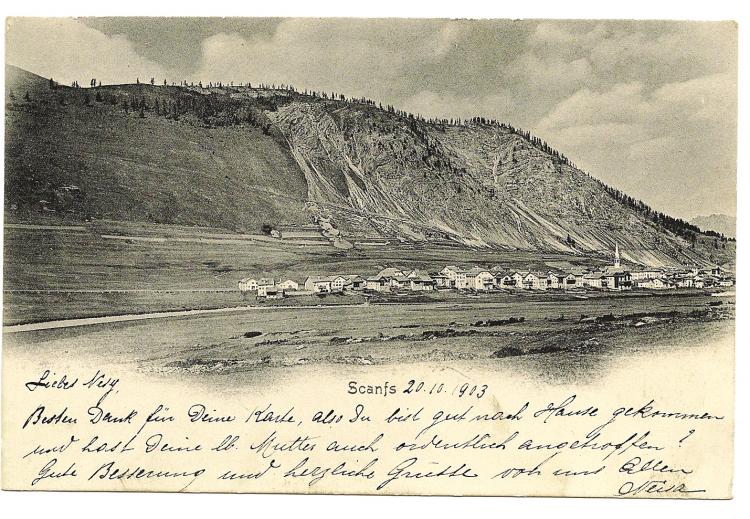 Scanfs 20.10.1903
Liebes Nesy,
Besten Dank für Deine Karte, also Du bist gut nach Hause gekommen
und hast Deine lb. Mutter auch ordentlich angetroffen?
Gute Besserung und herzliche Grüsse von uns Allen